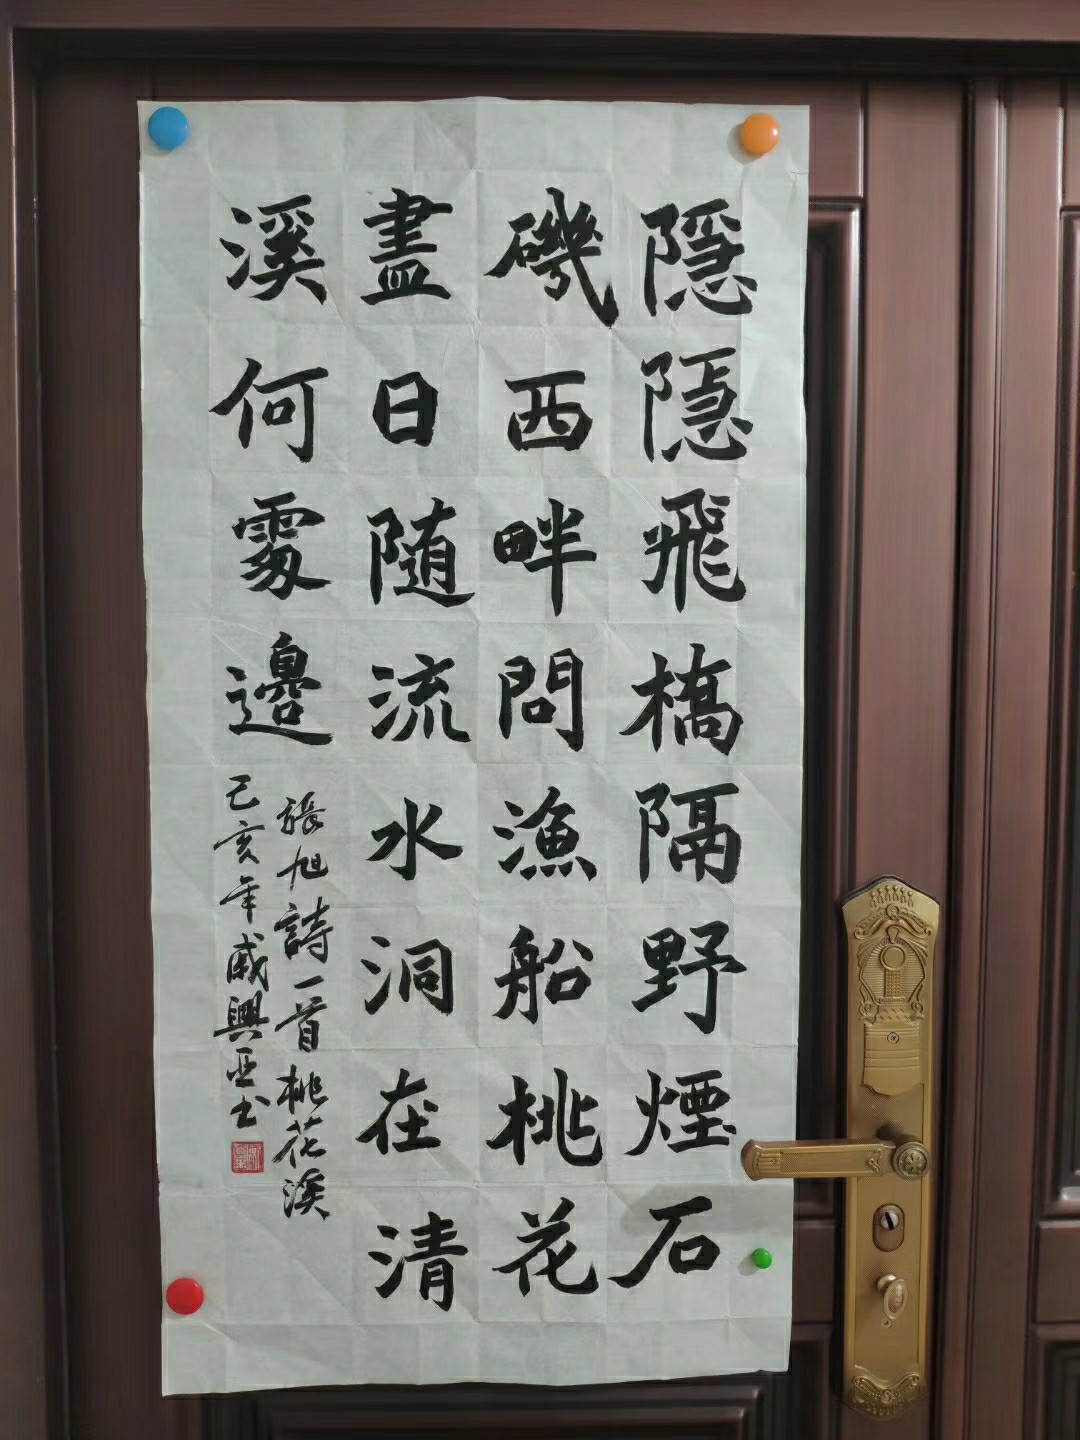 隱隱飛橋隔野煙石
磯西畔問漁船桃花
盡日随流水洞在清
溪何處邊
張旭詩一首桃花溪
己亥年戚興亚书